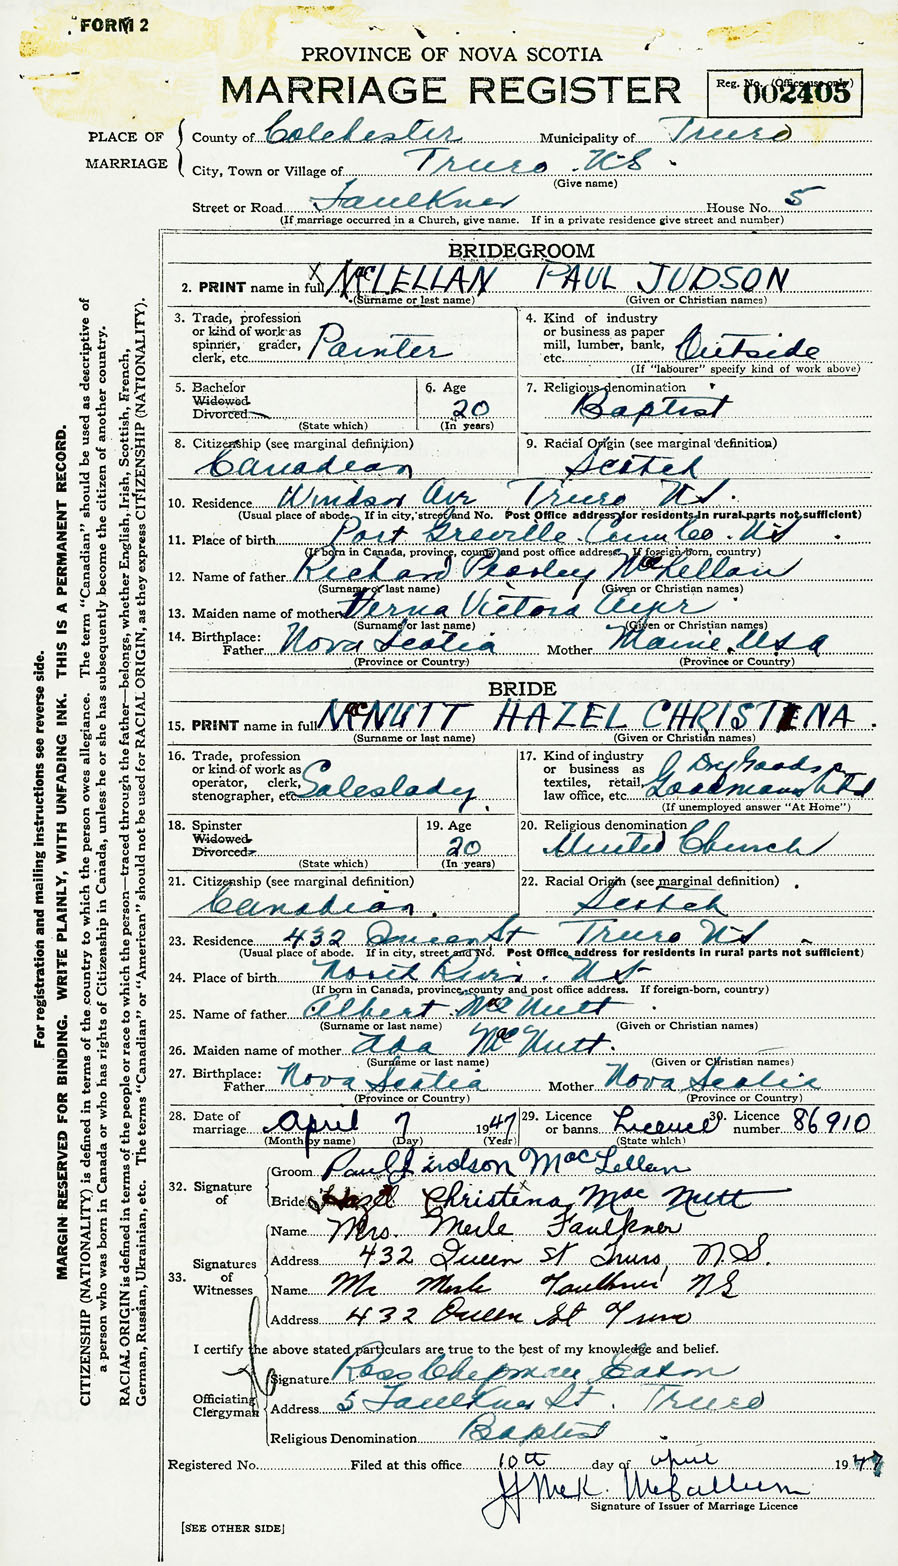 FORM 2
PROVINCE OF NOVA SCOTIA
MARRIAGE REGISTER
Reg. No. (Office use only)
002405
PLACE OF MARRIAGE
County of Colchester Municipality of Truro
City, Town or Village of Truro N-S.
(Give name)
Street or Road Faulkner House No. 5
(If marriage occurred in a Church, give name. If in a private residence give street and number)
BRIDEGROOM
2. PRINT name in full X MacLELLAN PAUL JUDSON
(Surname or last name) (Given or Christian names)
3. Trade, profession or kind of work as spinner, grader, clerk, etc. Painter
4. Kind of industry or business as paper mill, lumber, bank, etc. Outside
(If "labourer" specify kind of work above)
5. Bachelor Widowed Divorced
(State which)
6. Age 20
(In years)
7. Religious denomination Baptist
8. Citizenship (see marginal definition) Canadian
9. Racial Origin (see marginal definition) Scotch
10. Residence Windsor Ave Truro N.S.
(Usual place of abode. If in city, street and No. Post Office address for residents in rural parts not sufficient)
11. Place of birth Port Greville. Cum Co. N.S.
(If born in Canada, province, county and post office address. If foreign-born, country)
12. Name of father Richard Pearley MacLellan
(Surname or last name) (Given or Christian names)
13. Maiden name of mother Verna Victora
(Surname or last name) (Given or Christian names)
14. Birthplace: Father Nova Scotia Mother Maine. U.S.A
(Province or Country) (Province or Country)
BRIDE
15. PRINT name in full MacNUTT HAZEL CHRISTENA.
(Surname or last name) (Given or Christian names)
16. Trade, profession or kind of work as operator, clerk, stenographer, etc. Saleslady.
17. Kind of industry or business as textiles, retail, law office, etc. Dry Goods Goodmans Ltd
(If unemployed answer "At Home")
18. Spinster Widowed Divorced
(State which)
19. Age 20
(In years)
20. Religious denomination United Church
21. Citizenship (see marginal definition) Canadian.
22. Racial Origin (see marginal definition) Scotch
23. Residence 432 Queen St Truro N-S
(Usual place of abode. If in city, street and No. Post Office address for residents in rural parts not sufficient)
24. Place of birth North River. N.S-
(If born in Canada, province, county and post office address. If foreign-born, country)
25. Name of father Albert MacNutt
(Surname or last name) (Given or Christian names)
26. Maiden name of mother Ada MacNutt.
(Surname or last name) (Given or Christian names)
27. Birthplace: Father Nova Scotia Mother Nova Scotia
(Province or Country) (Province or Country)
28. Date of marriage April 7 1947
(Month by name) (Day) (Year)
29. Licence or banns Licence
(State which)
30. Licence number 86910
32. Signature of
Groom Paul Judson MacLellan
Bride Hazel Christena Mac Nutt
33. Signatures of Witnesses
Name Mrs. Merle Faulkner
Address 432 Queen St Truro, N.S.
Name Mr Merle Faulkner NS
Address 432 Queen St Truro
I certify the above stated particulars are true to the best of my knowledge and belief.
Officiating Clergyman
Signature Ross Chipman Eaton
Address 5 Faulkner St. Truro
Religious Denomination Baptist
Registered No. Filed at this office 10th day of April 1947
McCallum
Signature of Issuer of Marriage Licence
[SEE OTHER SIDE]
For registration and mailing instructions see reverse side.
MARGIN RESERVED FOR BINDING. WRITE PLAINLY, WITH UNFADING INK. THIS IS A PERMANENT RECORD.
CITIZENSHIP (NATIONALITY) is defined in terms of the country to which the person owes allegiance. The term "Canadian" should be used as descriptive of
a person who was born in Canada or who has rights of Citizenship in Canada, unless he or she has subsequently become the citizen of another country.
RACIAL ORIGIN is defined in terms of the people or race to which the person—traced through the father—belongs, whether English, Irish, Scottish, French,
German, Russian, Ukrainian, etc. The terms "Canadian" or "American" should not be used for RACIAL ORIGIN, as they express CITIZENSHIP (NATIONALITY).